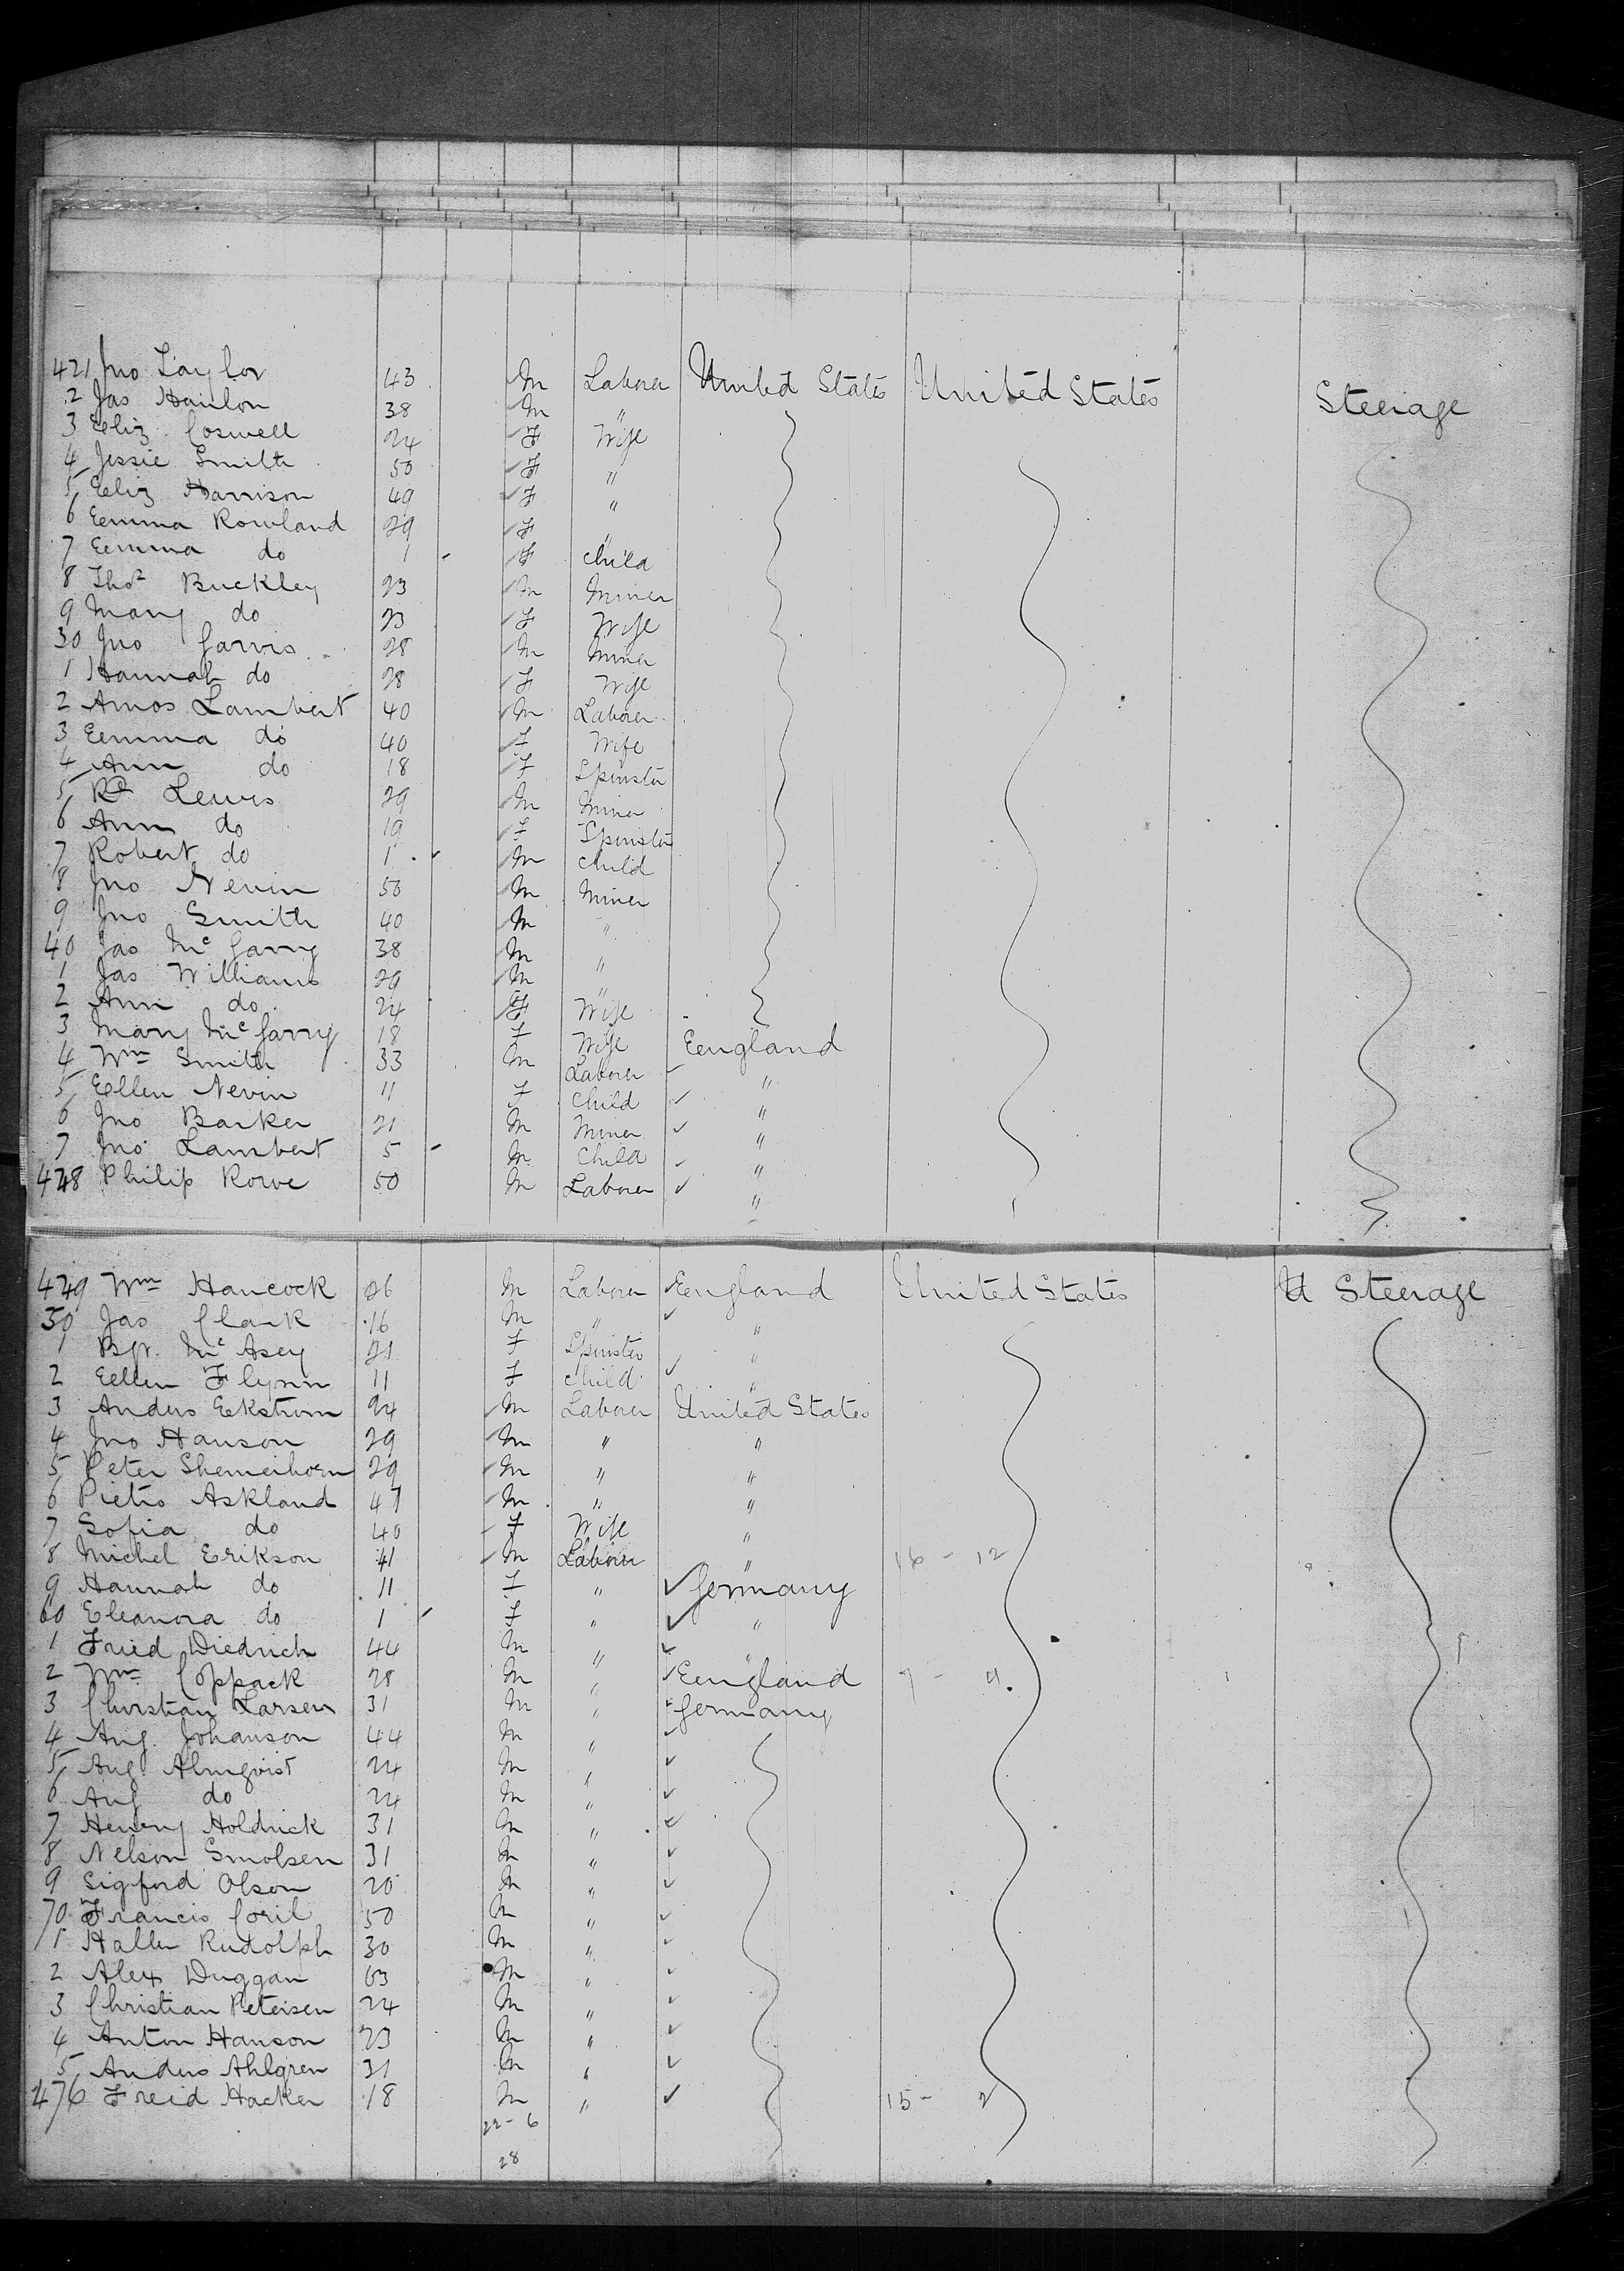 421 Jno Taylor 43 M Laborer United States United States Steerage
2 Jas Hanlon 38 M "
3 Eliz Coswell 24 F Wife
4 Jessie Smith 50 F "
5 Eliz Harrison 49 F "
6 Emma Rowland 29 F "
7 Emma do 1 F Child
8 Thos Buckley 23 M Miner
9 Mary do 23 F Wife
30 Jno Jarvis 28 M Miner
1 Hannah do 28 F Wife
2 Amos Lambert 40 M Laborer
3 Emma do 40 F Wife
4 Ann do 18 F Spinster
5 Rd Lewis 29 M Miner
6 Ann do 19 F Spinster
7 Robert do 1 M Child
8 Jno Nevin 50 M Miner
9 Jno Smith 40 M "
40 Jas McGarry 38 M "
1 Jas Williams 29 M "
2 Ann do 24 F Wife
3 Mary McGarry 18 F Wife England
4 Wm Smith 33 M Laborer "
5 Ellen Nevin 11 F Child "
6 Jno Barker 21 M Miner "
7 Jno Lambert 5 M Child "
448 Philip Rowe 50 M Laborer "
449 Wm Hancock 26 M Laborer England United States Steerage
50 Jas Clark 16 M " "
1 Bgt. McAsey 21 F Spinster "
2 Ellen Flynn 11 F Child "
3 Anders Ekstrom 24 M Laborer United States
4 Jno Hanson 29 M " "
5 Peter Shemeihorn 29 M " "
6 Pietro Askland 47 M " "
7 Sofia do 40 F Wife "
8 Michel Erikson 41 M Laborer " 16 - 12
9 Hannah do 11 F " Germany
60 Eleanora do 1 F " "
1 Fried Diedrich 44 M " "
2 Wm Coppack 28 M " England 7 - 4
3 Christian Larsen 31 M " Germany
4 Aug. Johanson 44 M "
5 Aug. Almqvist 24 M "
6 Aug do 24 M "
7 Henry Holdrick 31 M "
8 Nelson Smolsen 31 M "
9 Sigford Olson 20 M "
70 Francis Coril 50 M "
1 Haller Rudolph 30 M "
2 Alex Duggan 63 M "
3 Christian Petersen 24 M "
4 Anton Hanson 23 M "
5 Anders Ahlgren 31 M "
476 Freid Hacker 18 M " 15 - 2
22 - 6
28